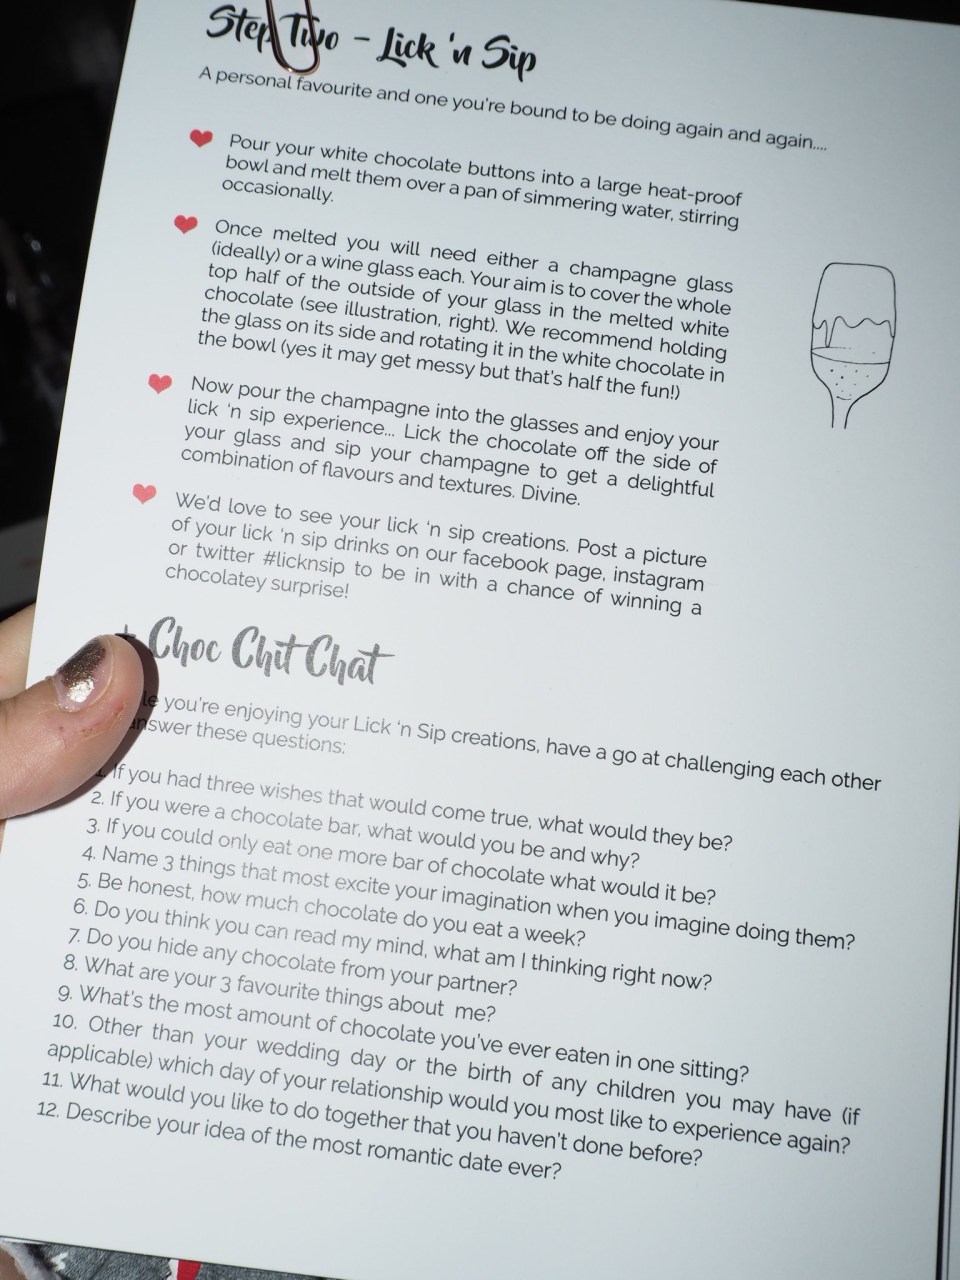 Step Two - Lick 'n Sip
A personal favourite and one you're bound to be doing again and again....
Pour your white chocolate buttons into a large heat-proof
bowl and melt them over a pan of simmering water, stirring
occasionally.
Once melted you will need either a champagne glass
(ideally) or a wine glass each. Your aim is to cover the whole
top half of the outside of your glass in the melted white
chocolate (see illustration, right). We recommend holding
the glass on its side and rotating it in the white chocolate in
the bowl (yes it may get messy but that's half the fun!)
Now pour the champagne into the glasses and enjoy your
lick 'n sip experience... Lick the chocolate off the side of
your glass and sip your champagne to get a delightful
combination of flavours and textures. Divine.
We'd love to see your lick 'n sip creations. Post a picture
of your lick 'n sip drinks on our facebook page, instagram
or twitter #licknsip to be in with a chance of winning a
chocolatey surprise!
+ Choc Chit Chat
you're enjoying your Lick 'n Sip creations, have a go at challenging each other
answer these questions:
1. If you had three wishes that would come true, what would they be?
2. If you were a chocolate bar, what would you be and why?
3. If you could only eat one more bar of chocolate what would it be?
4. Name 3 things that most excite your imagination when you imagine doing them?
5. Be honest, how much chocolate do you eat a week?
6. Do you think you can read my mind, what am I thinking right now?
7. Do you hide any chocolate from your partner?
8. What are your 3 favourite things about me?
9. What's the most amount of chocolate you've ever eaten in one sitting?
10. Other than your wedding day or the birth of any children you may have (if
applicable) which day of your relationship would you most like to experience again?
11. What would you like to do together that you haven't done before?
12. Describe your idea of the most romantic date ever?